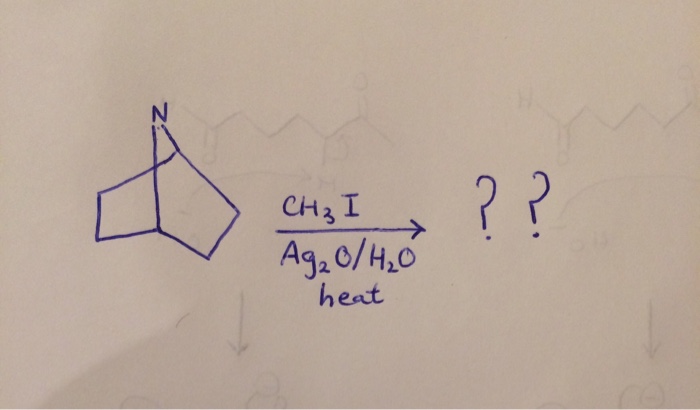 N
CH₃I
Ag₂O/H₂O
heat
? ?